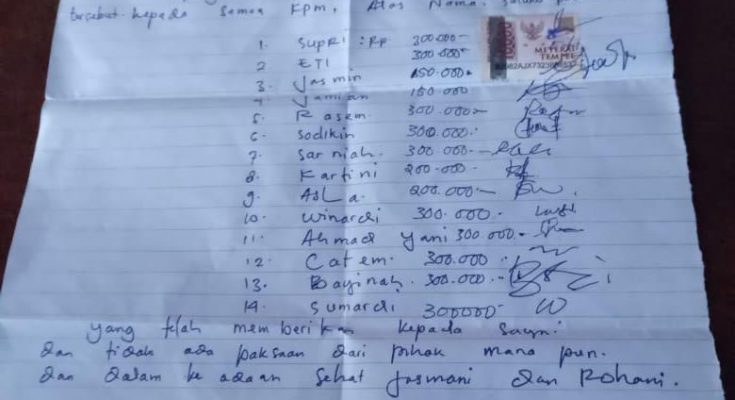 tersebut kepada semua KPM, Atas Nama,
1. Supri : Rp 300.000-
2 ETI 300.000-
3. Jasmin 150.000-
4 Jamian 150.000
5. Rasem. 300.000-
6. Sodikin 300.000.-
7. Sarniah. 300.000-
8. Kartini 200.000-
9. ASLa. 200.000-
10. Winardi 300.000.
11. Ahmad Yani 300.000.-
12. Catem. 300.000
13. Bayinah. 300.000.-
14. Sumardi 300000-
METERAI
TEMPEL
yang telah memberikan kepada saya.
dan tidak ada paksaan dari pihak mana pun.
dan dalam ke adaan sehat Jasmani dan Rohani.